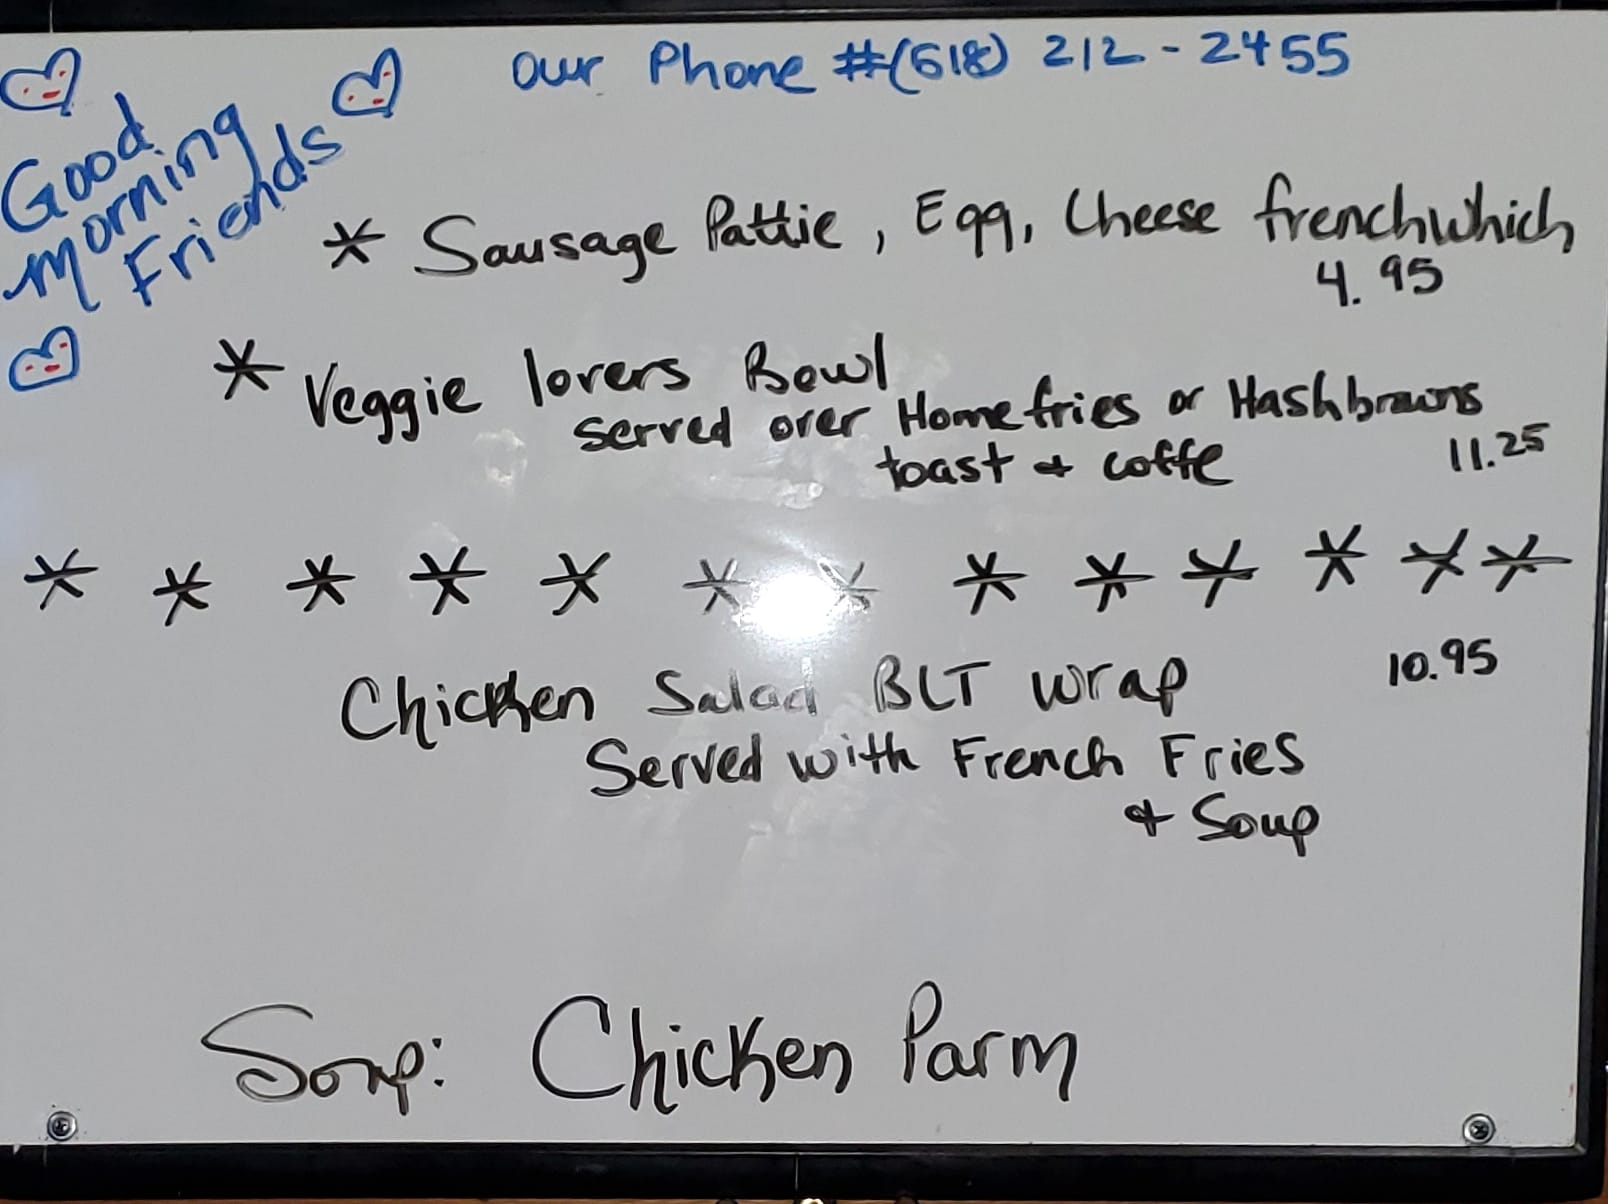 Our Phone #(518) 212-2455
Good
morning
Friends
* Sausage Pattie, Egg, Cheese frenchwhich
4.95
* Veggie lovers Bowl
served over Homefries or Hashbrowns
toast & coffe 11.25
* * * * * * * * * * * * *
Chicken Salad BLT wrap 10.95
Served with French Fries
& Soup
Soup: Chicken Parm